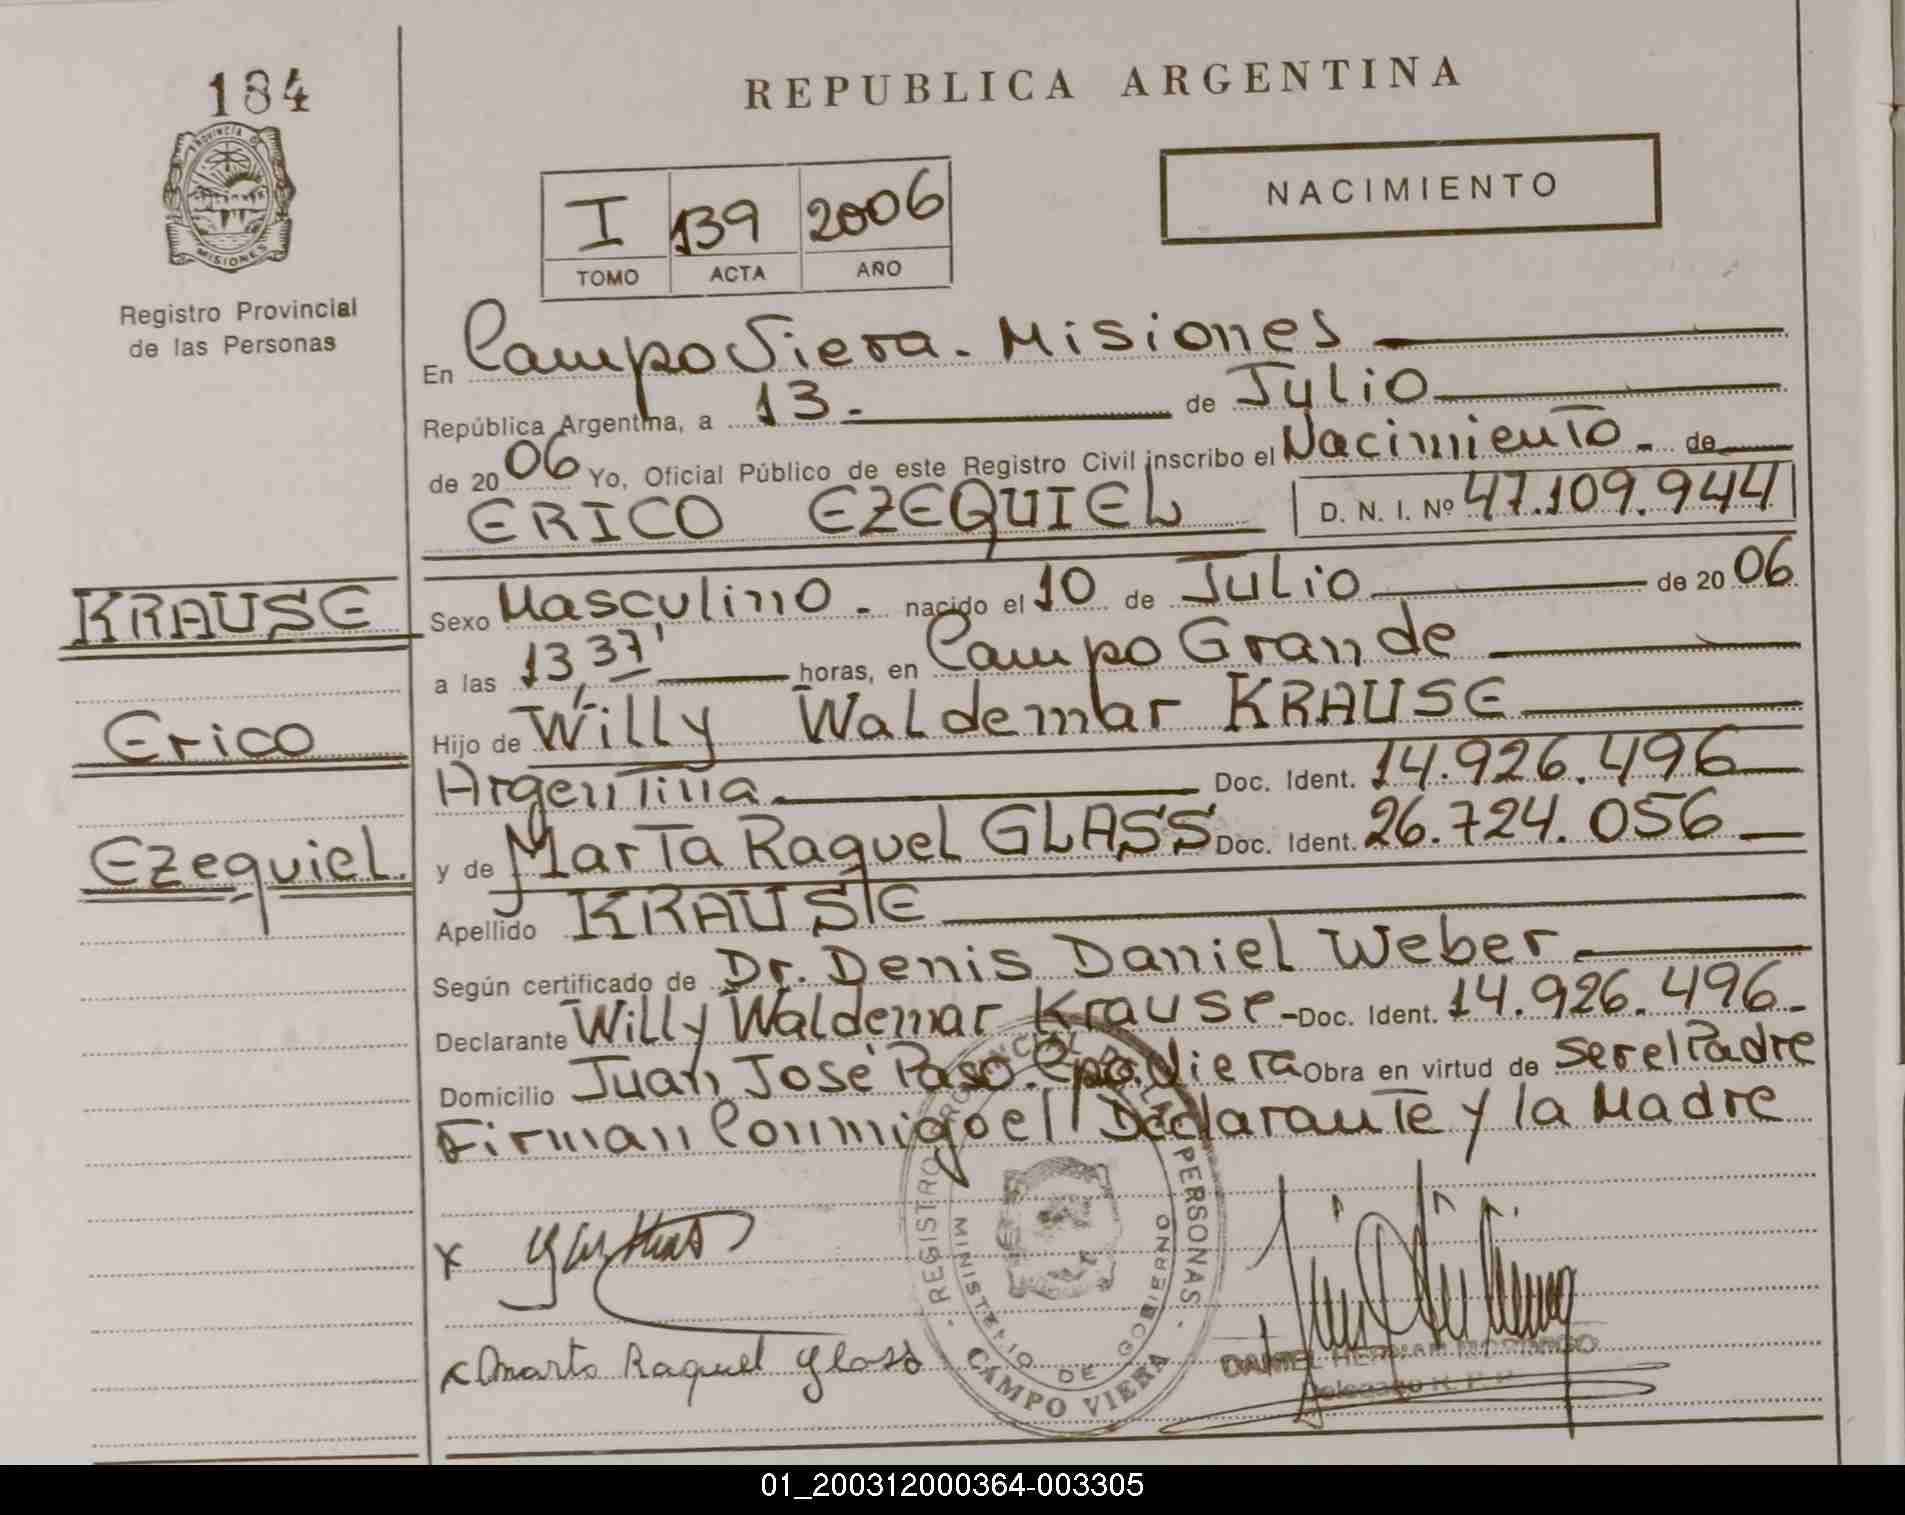 184
REPUBLICA ARGENTINA
PROVINCIA DE
MISIONES
Registro Provincial
de las Personas
NACIMIENTO
I 139 2006
TOMO ACTA AÑO
En Campo Viera. Misiones
República Argentina, a 13. de Julio
de 2006 Yo, Oficial Público de este Registro Civil inscribo el Nacimiento. de
ERICO EZEQUIEL D. N. I. Nº 47.109.944
KRAUSE
Erico
Ezequiel.
Sexo Masculino. nacido el 10 de Julio de 2006
a las 13,37' horas, en Campo Grande
Hijo de Willy Waldemar KRAUSE
Argentina. Doc. Ident. 14.926.496
y de Marta Raquel GLASS Doc. Ident. 26.724.056
Apellido KRAUSE
Según certificado de Dr. Denis Daniel Weber
Declarante Willy Waldemar Krause - Doc. Ident. 14.926.496.
Domicilio Juan José Paso. Cpo. Viera Obra en virtud de ser el Padre
Firman Conmigo el Declarante y la Madre
x
x Marta Raquel Glass
REGISTRO PROVINCIAL DE LAS PERSONAS
MINISTERIO DE GOBIERNO
CAMPO VIERA
DANIEL HERNAN
Delegado R. P. P.
01_200312000364-003305